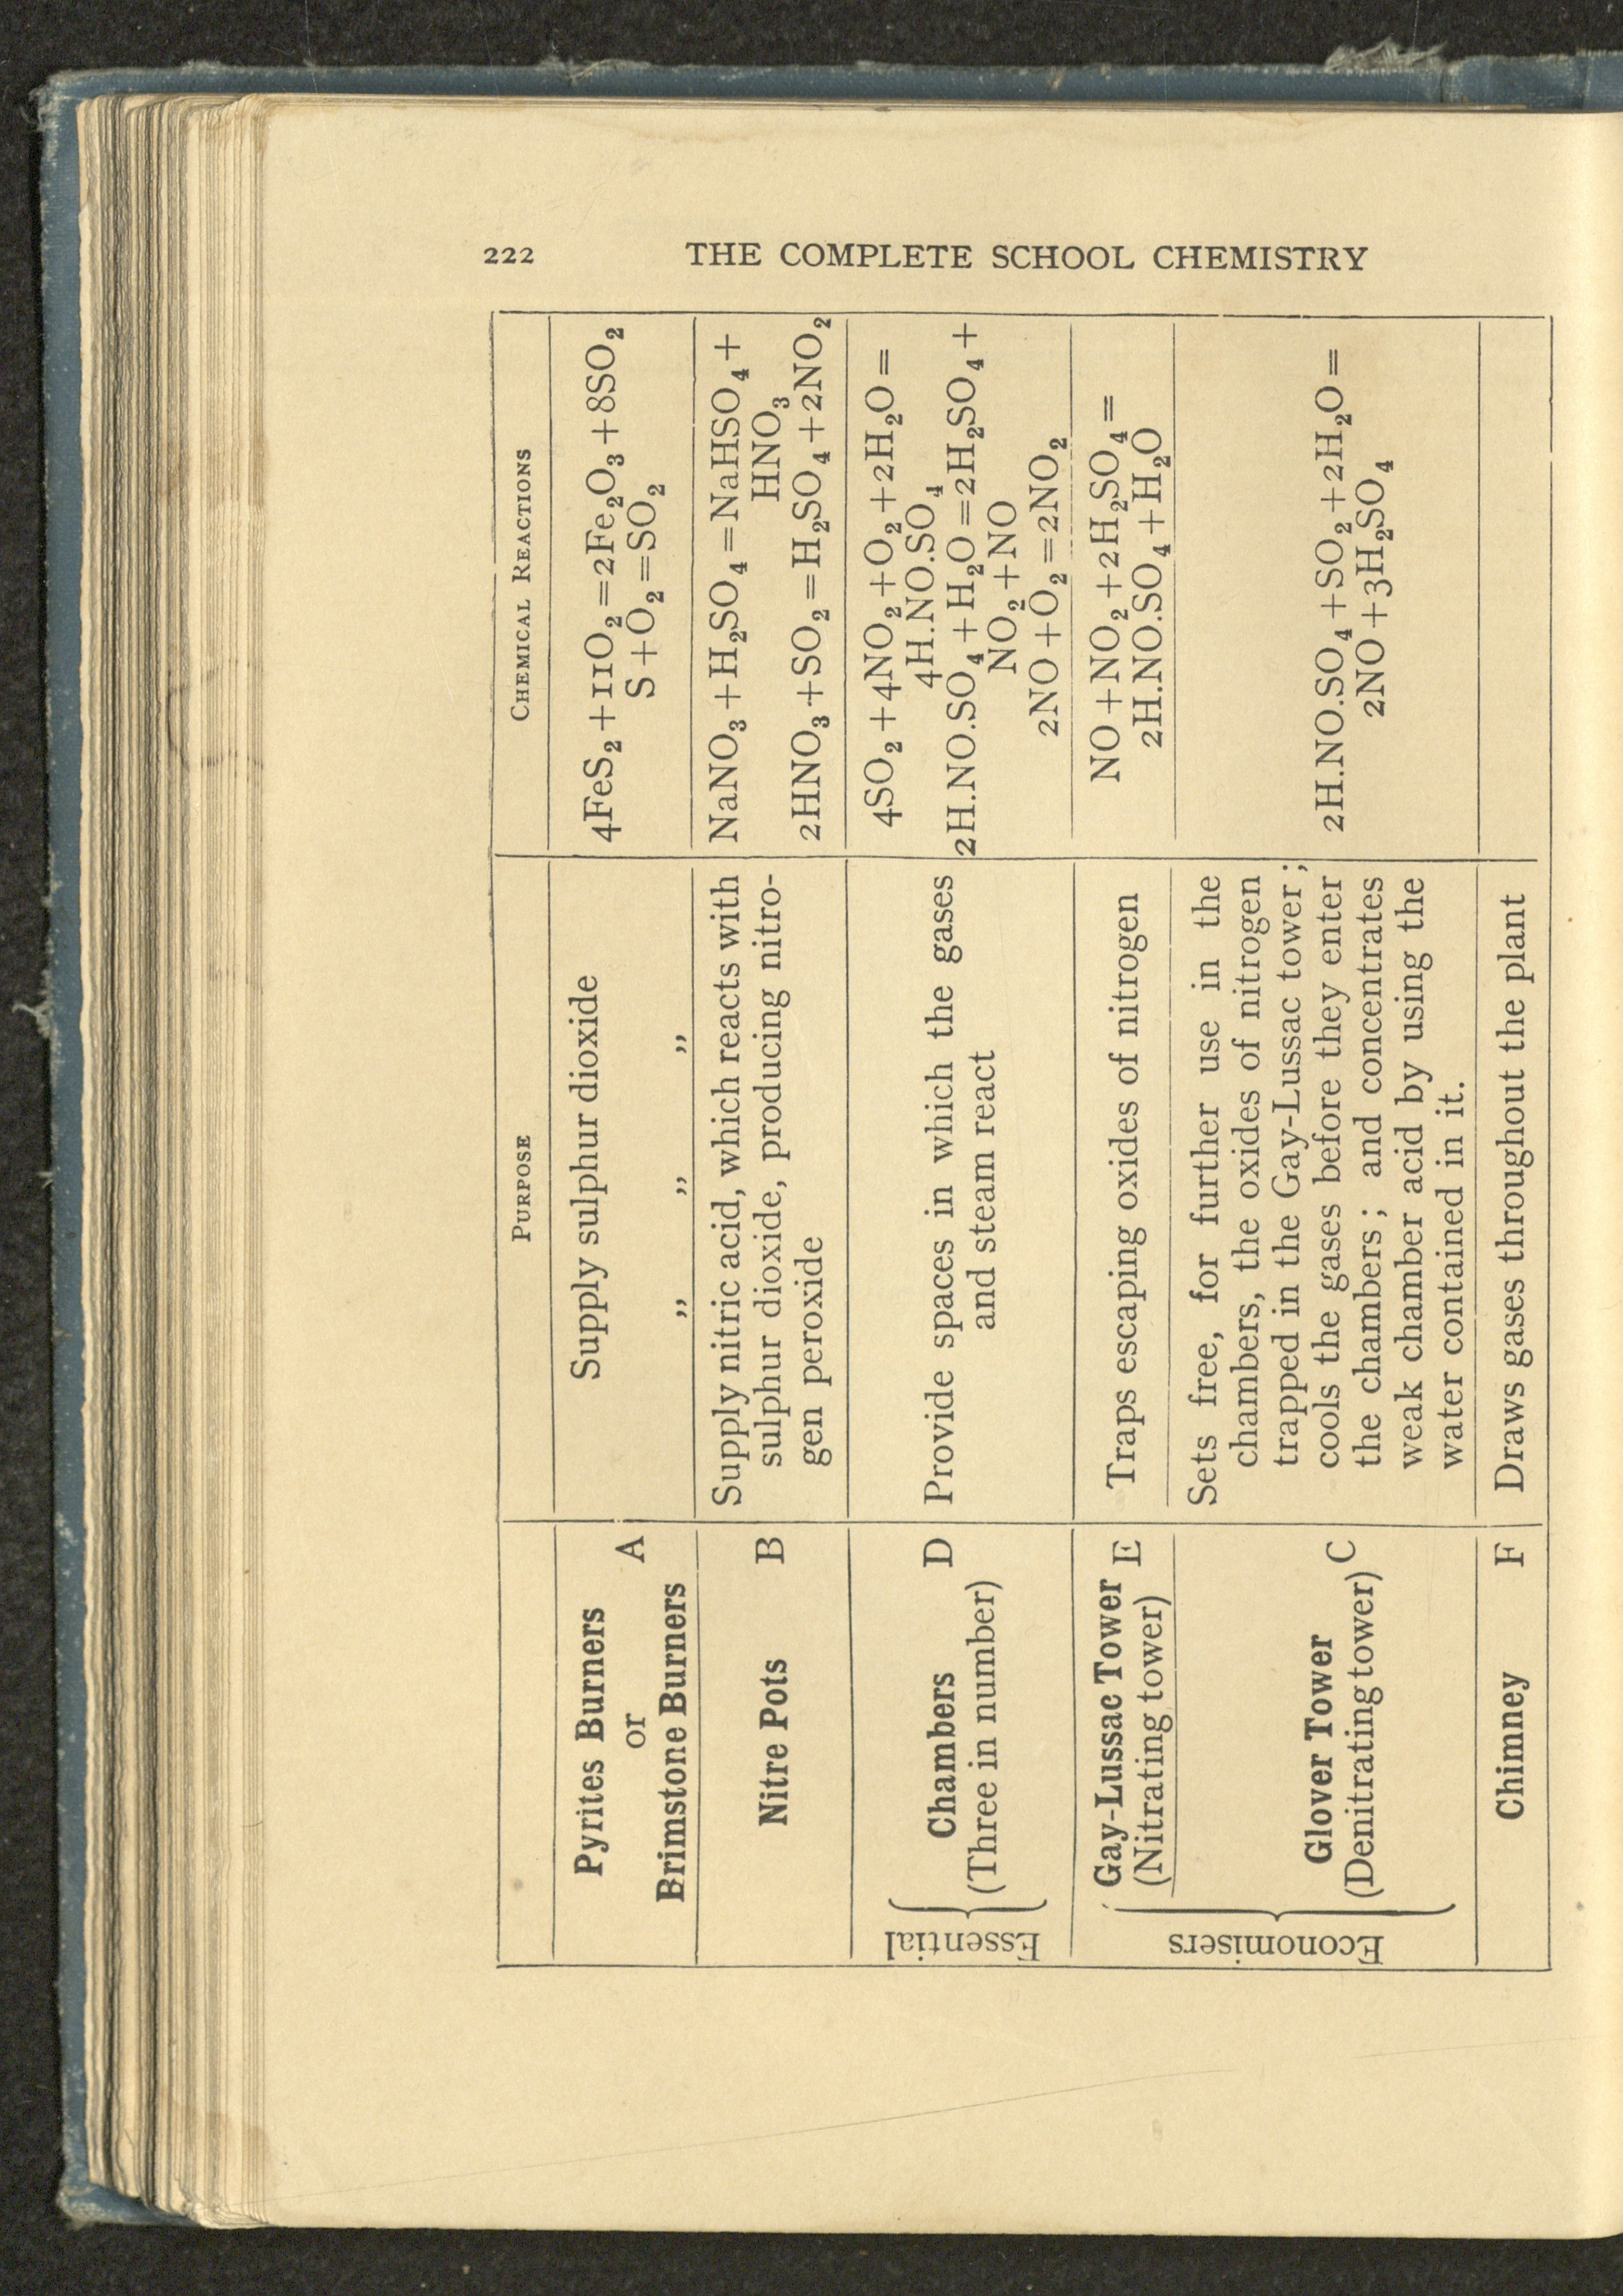 222 THE COMPLETE SCHOOL CHEMISTRY
PURPOSE
CHEMICAL REACTIONS
Pyrites Burners
or A
Brimstone Burners
Supply sulphur dioxide
„ „ „
4FeS₂+11O₂=2Fe₂O₃+8SO₂
S+O₂=SO₂
Nitre Pots B
Supply nitric acid, which reacts with
sulphur dioxide, producing nitro-
gen peroxide
NaNO₃+H₂SO₄=NaHSO₄+
HNO₃
2HNO₃+SO₂=H₂SO₄+2NO₂
Essential
Chambers D
(Three in number)
Provide spaces in which the gases
and steam react
4SO₂+4NO₂+O₂+2H₂O=
4H.NO.SO₄
2H.NO.SO₄+H₂O=2H₂SO₄+
NO₂+NO
2NO+O₂=2NO₂
Economisers
Gay-Lussac Tower E
(Nitrating tower)
Traps escaping oxides of nitrogen
NO+NO₂+2H₂SO₄=
2H.NO.SO₄+H₂O
Glover Tower C
(Denitrating tower)
Sets free, for further use in the
chambers, the oxides of nitrogen
trapped in the Gay-Lussac tower;
cools the gases before they enter
the chambers; and concentrates
weak chamber acid by using the
water contained in it.
2H.NO.SO₄+SO₂+2H₂O=
2NO+3H₂SO₄
Chimney F
Draws gases throughout the plant